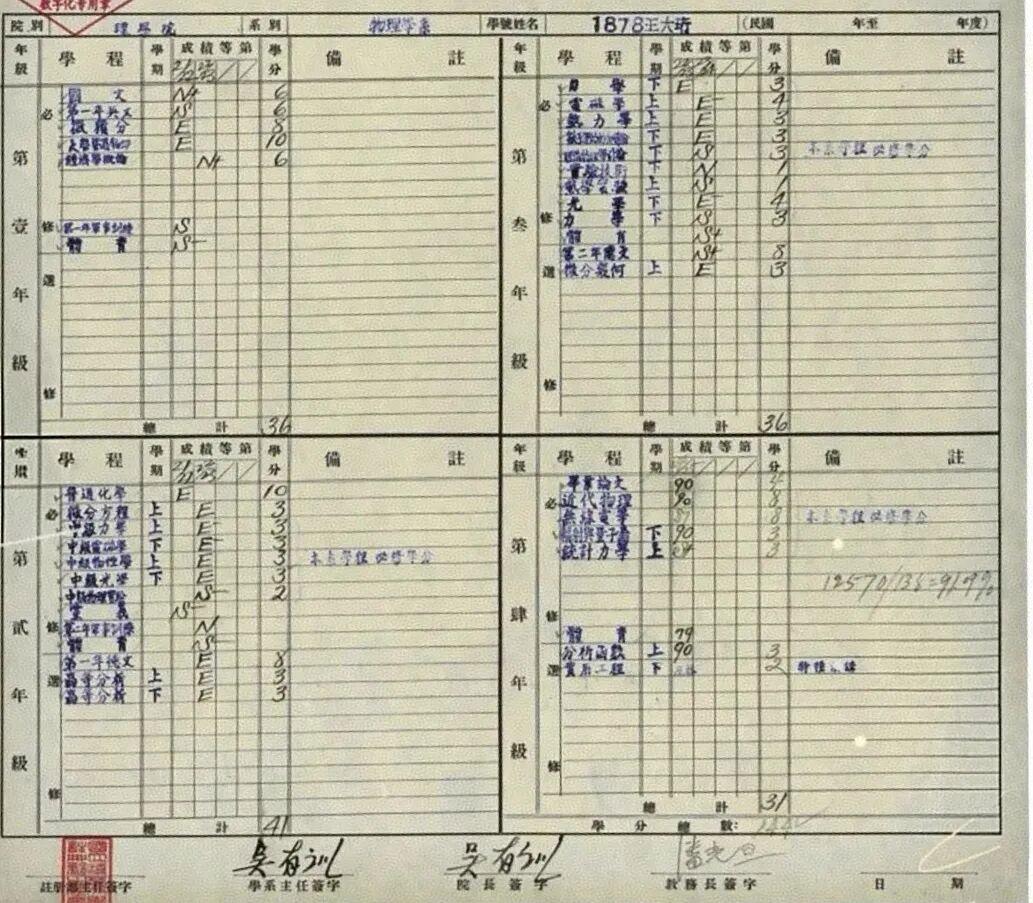 數字化专用章
院別 理學院 系別 物理學系 學號姓名 1878王大珩 (民國 年至 年度)
年級 學程 學期 成績等第 學分 備註
第壹年級
必修
國文 N+ 6
第一年英文 S 6
微積分 E 8
大學普通物理 E 10
經濟學概論 N+ 6
第一年軍事訓練 S
體育 S-
選修
總計 36
年級 學程 學期 成績等第 學分 備註
第叁年級
必修
力學 下 E 3
電磁學 上 E- 4
熱力學 上 E 3
下 E 3
下 S 3 本系學程必修學分
實驗技術 下 N 1
上 S 1
光學 下 E- 4
力學 下 S 3
體育 S+
第二年德文 S+ 8
選修
微分幾何 上 E 3
總計 36
學程 學期 成績等第 學分 備註
第貳年級
必修
普通化學 E 10
微分方程 上 E 3
中級力學 上 E- 3
中級電磁學 下 E 3
中級物性學 上 E 3 本系學程必修學分
中級光學 下 E 3
中級物理實驗 S- 2
黨義 S-
第二年軍事訓練 N
體育 S
選修
第一年德文 E 8
高等分析 上 E 3
高等分析 下 E 3
總計 41
年級 學程 學期 成績等第 學分 備註
第肆年級
必修
畢業論文 90 4
近代物理 90 8
無線電學 8 本系學程必修學分
輻射與量子論 下 90 3
統計力學 上 3
12570/136=91.9%
體育 79
選修
分析函數 上 90 3
實用工程 下 2
總計 31
學分總數:
註冊部主任簽字
吳有训 學系主任簽字
吳有训 院長簽字
潘光旦 教務長簽字
日期